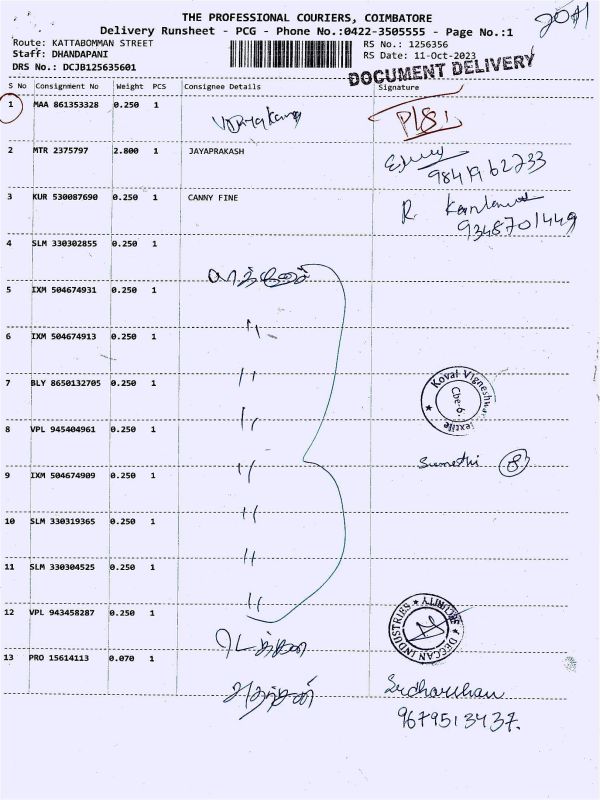 THE PROFESSIONAL COURIERS, COIMBATORE
2011
Delivery Runsheet - PCG - Phone No.:0422-3505555 - Page No.:1
Route: KATTABOMMAN STREET
RS No.: 1256356
Staff: DHANDAPANI
RS Date: 11-Oct-2023
DRS No.: DCJB125635601
DOCUMENT DELIVERY
S No Consignment No Weight PCS Consignee Details Signature
1 MAA 861353328 0.250 1
2 MTR 2375797 2.800 1 JAYAPRAKASH
9841962233
3 KUR 530087690 0.250 1 CANNY FINE
R.
9348701449
4 SLM 330302855 0.250 1
5 IXM 504674931 0.250 1
6 IXM 504674913 0.250 1
"
7 BLY 8650132705 0.250 1
"
Koval Vigneshwar Textile
Cbe-6.
8 VPL 945404961 0.250 1
"
9 IXM 504674909 0.250 1
"
Sumathi 8
10 SLM 330319365 0.250 1
"
11 SLM 330304525 0.250 1
"
12 VPL 943458287 0.250 1
"
DECCAN INDUSTRIES * SECURITY *
13 PRO 15614113 0.070 1
9679513437.